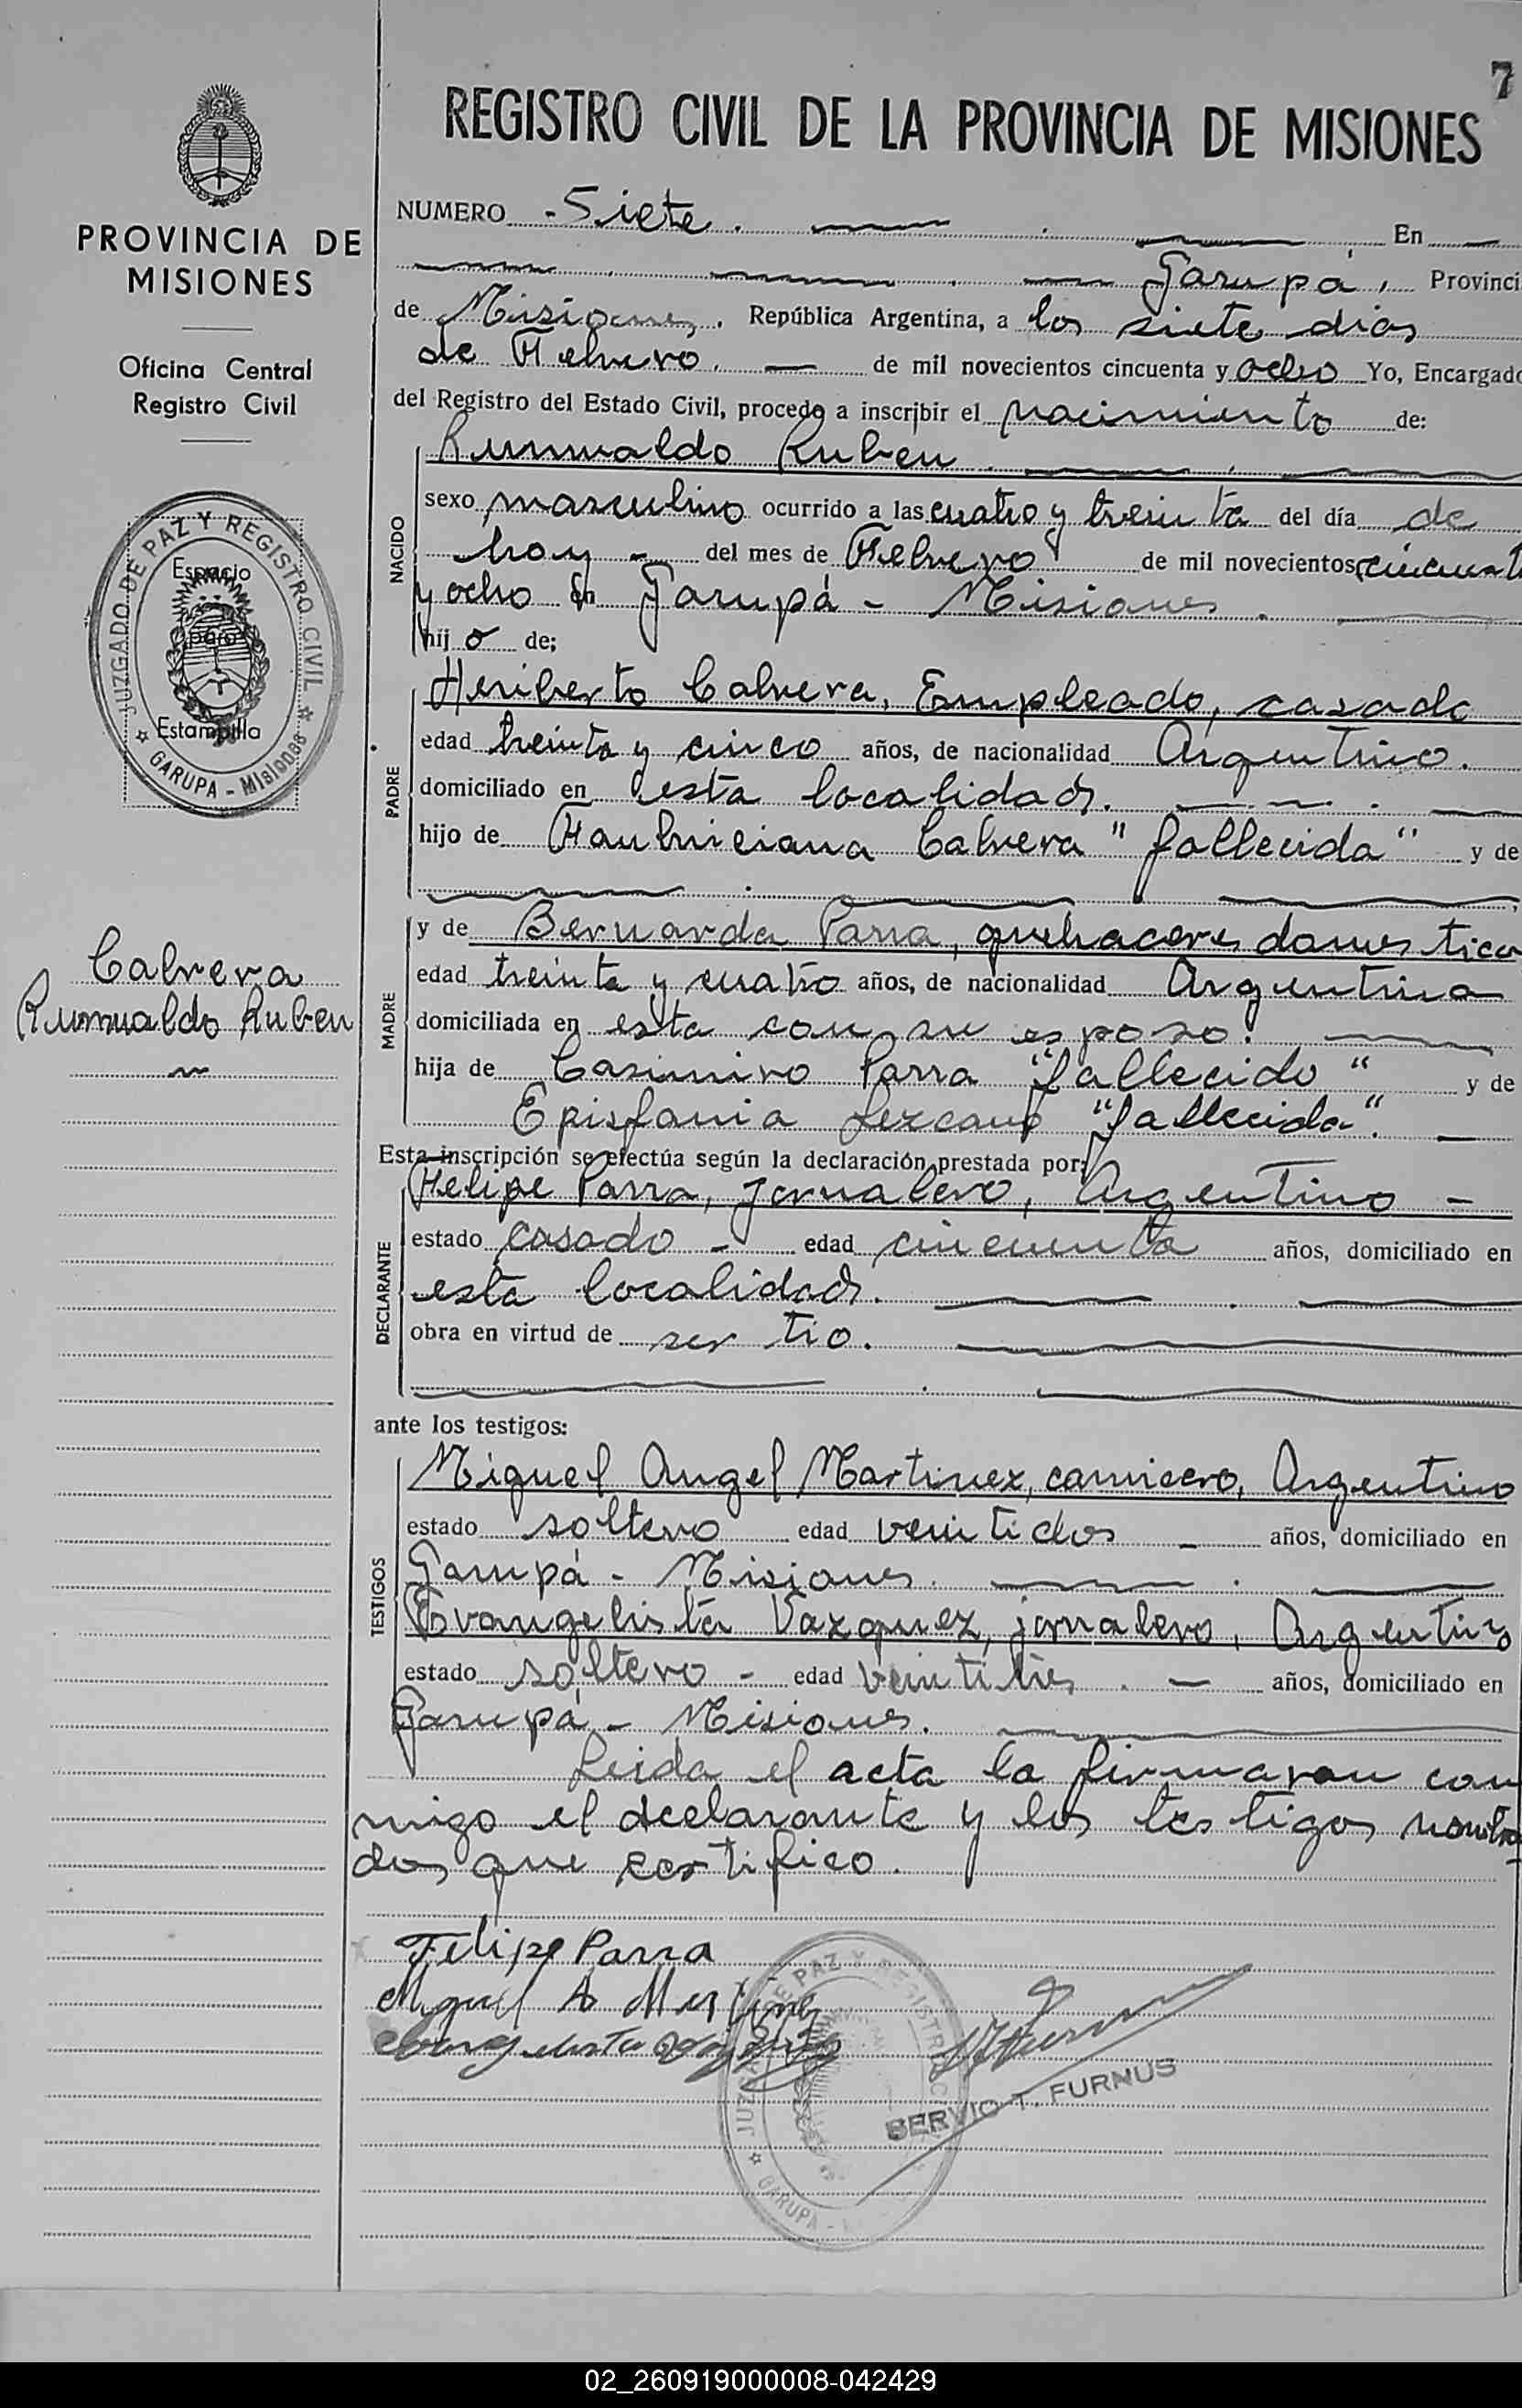 7
REGISTRO CIVIL DE LA PROVINCIA DE MISIONES
PROVINCIA DE
MISIONES
Oficina Central
Registro Civil
JUZGADO DE PAZ Y REGISTRO CIVIL
GARUPA - Misiones
Espacio
para
Estampilla
Cabrera
Rumualdo Ruben
NUMERO - Siete. En
Garupá, Provinci
de Misiones, República Argentina, a los siete dias
de Febrero. de mil novecientos cincuenta y ocho Yo, Encargado
del Registro del Estado Civil, procedo a inscribir el nacimiento de:
Rumualdo Ruben
NACIDO
sexo masculino ocurrido a las cuatro y treinta del día de
hoy - del mes de Febrero de mil novecientos cincuent
y ocho En Garupá - Misiones.
hij o de;
PADRE
Heriberto Cabrera, Empleado, casado
edad treinta y cinco años, de nacionalidad Argentino.
domiciliado en esta localidad.
hijo de Cabrera "fallecida" y de
MADRE
y de Bernarda Parra, quehaceres domestico
edad treinta y cuatro años, de nacionalidad Argentina
domiciliada en esta con su esposo.
hija de Casimiro Parra "fallecido" y de
Episfania Lezcano "fallecida".
Esta inscripción se efectúa según la declaración prestada por:
DECLARANTE
Felipe Parra, jornalero, Argentino -
estado casado - edad cincuenta años, domiciliado en
esta localidad.
obra en virtud de ser tio.
ante los testigos:
TESTIGOS
Miguel Angel Martinez, carnicero, Argentino
estado soltero edad veintidos - años, domiciliado en
Garupá - Misiones.
Evangelista Vazquez, jornalero, Argentino
estado soltero - edad veintitres. - años, domiciliado en
Garupá - Misiones.
Leida el acta la firmaron con
migo el declarante y los testigos nombra
dos que certifico.
Felipe Parra
Miguel A Martinez
Evangelista Vazquez
JUZGADO DE PAZ Y REGISTRO CIVIL
GARUPA
SERVIO T. FURNUS
02_260919000008-042429